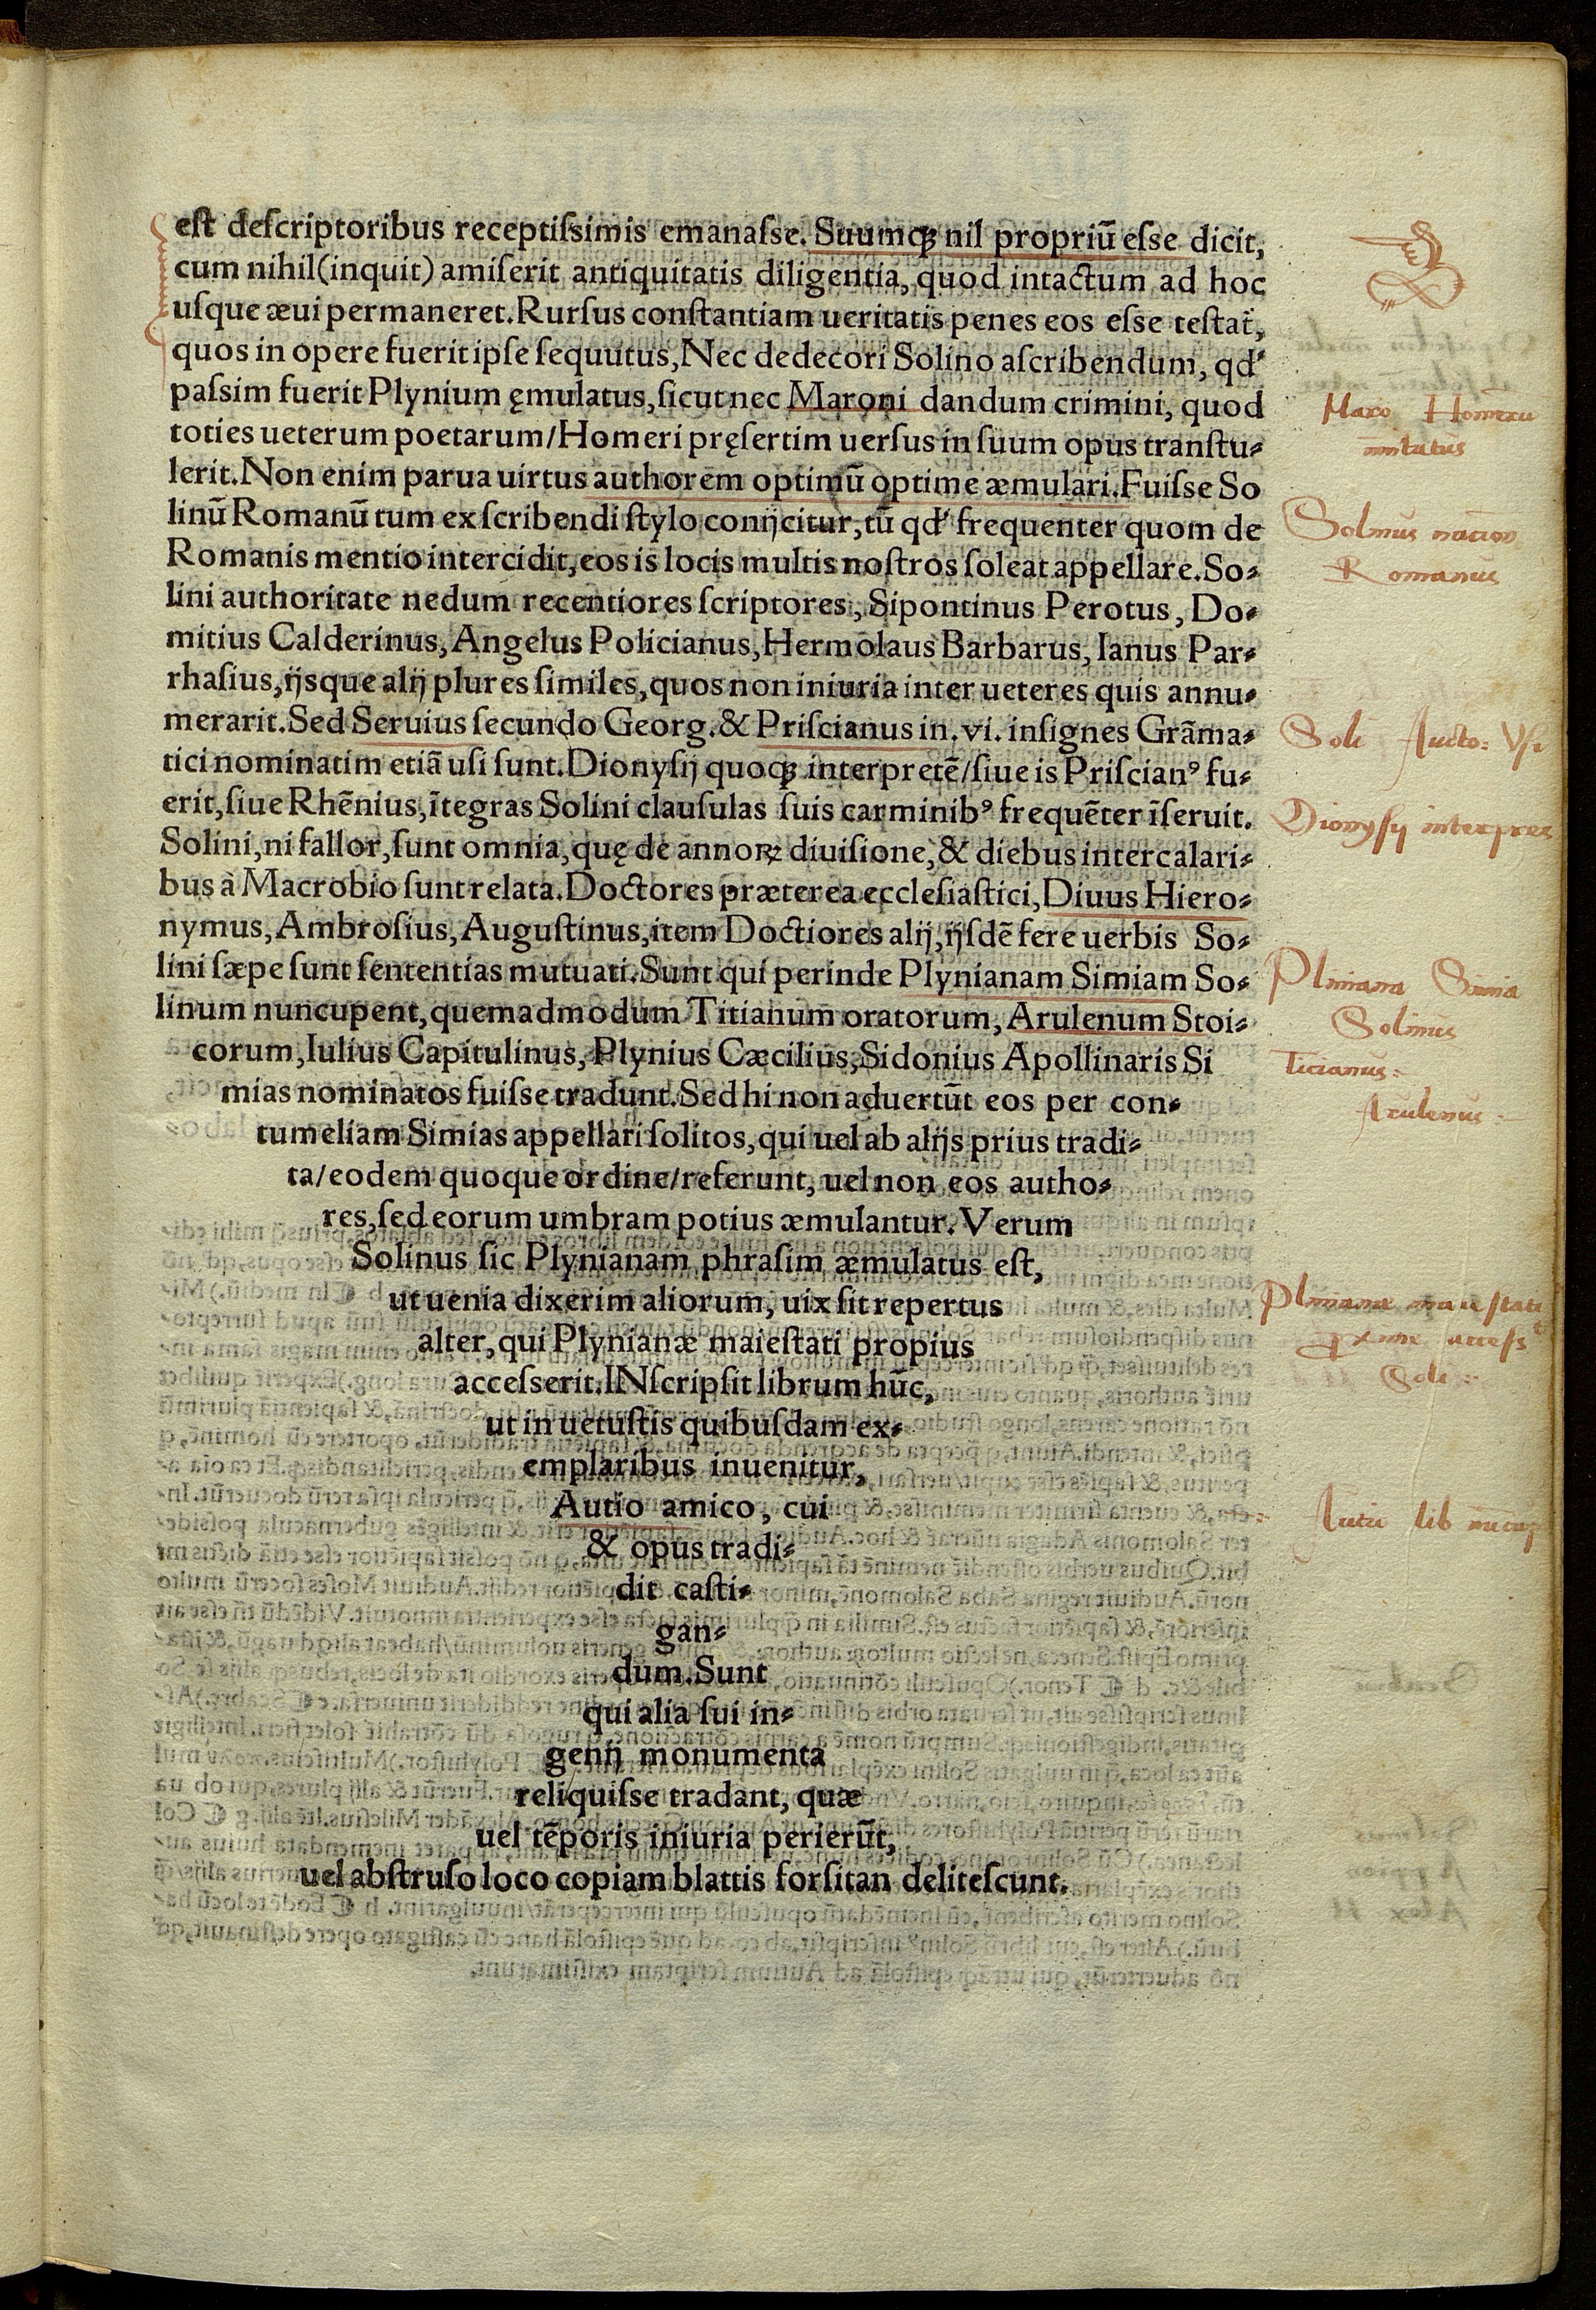 est descriptoribus receptissimis emanasse. Suumqꝫ nil propriū esse dicit,
cum nihil(inquit) amiserit antiquitatis diligentia, quod intactum ad hoc
usque æui permaneret. Rursus constantiam ueritatis penes eos esse testat̃,
quos in opere fuerit ipse sequutus, Nec dedecori Solino ascribendum, qđ
passim fuerit Plynium ęmulatus, sicut nec Maroni dandum crimini, quod
Maro Homeru
imitatus
toties ueterum poetarum/Homeri pręsertim uersus in suum opus transtu⸗
lerit. Non enim parua uirtus authorem optimū optime æmulari. Fuisse So
linū Romanū tum ex scribendi stylo conijcitur, tū qđ frequenter quom de
Solinus nacion
Romanus
Romanis mentio intercidit, eos is locis multis nostros soleat appellare. So⸗
lini authoritate nedum recentiores scriptores, Sipontinus Perotus, Do⸗
mitius Calderinus, Angelus Policianus, Hermolaus Barbarus, Ianus Par⸗
rhasius, ijsque alij plures similes, quos non iniuria inter ueteres quis annu⸗
merarit. Sed Seruius secundo Georg. & Priscianus in. vi. insignes Grāma⸗
Soli Aucto: Vsi
tici nominatim etiā usi sunt. Dionysij quoqꝫ interpretē/siue is Priscianꝰ fu⸗
erit, siue Rhēnius, ītegras Solini clausulas suis carminibꝰ frequēter īseruit.
Dionysij interpres
Solini, ni fallor, sunt omnia, quę de annoꝝ diuisione, & diebus intercalari⸗
bus à Macrobio sunt relata. Doctores præterea ecclesiastici, Diuus Hiero⸗
nymus, Ambrosius, Augustinus, item Doctiores alij, ijsdē fere uerbis So⸗
lini sæpe sunt sententias mutuati. Sunt qui perinde Plynianam Simiam So⸗
Pliniana Simia
Solinus
linum nuncupent, quemadmodum Titianum oratorum, Arulenum Stoi⸗
corum, Iulius Capitulinus, Plynius Cæcilius, Sidonius Apollinaris Si
Ticianus:
mias nominatos fuisse tradunt. Sed hi non aduertūt eos per con⸗
Arulenus:
tumeliam Simias appellari solitos, qui uel ab alijs prius tradi⸗
ta/eodem quoque ordine/referunt, uel non eos autho⸗
res, sed eorum umbram potius æmulantur. Verum
Solinus sic Plynianam phrasim æmulatus est,
ut uenia dixerim aliorum, uix sit repertus
Pliniane maiestati
alter, qui Plynianæ maiestati propius
Soli:
accesserit. INscripsit librum hūc,
ut in uetustis quibusdam ex⸗
emplaribus inuenitur,
Autio amico, cui
Autii lib
& opus tradi⸗
dit casti⸗
gan⸗
dum. Sunt
qui alia sui in⸗
genij monumenta
reliquisse tradant, quæ
uel tēporis iniuria perierūt,
uel abstruso loco copiam blattis forsitan delitescunt.